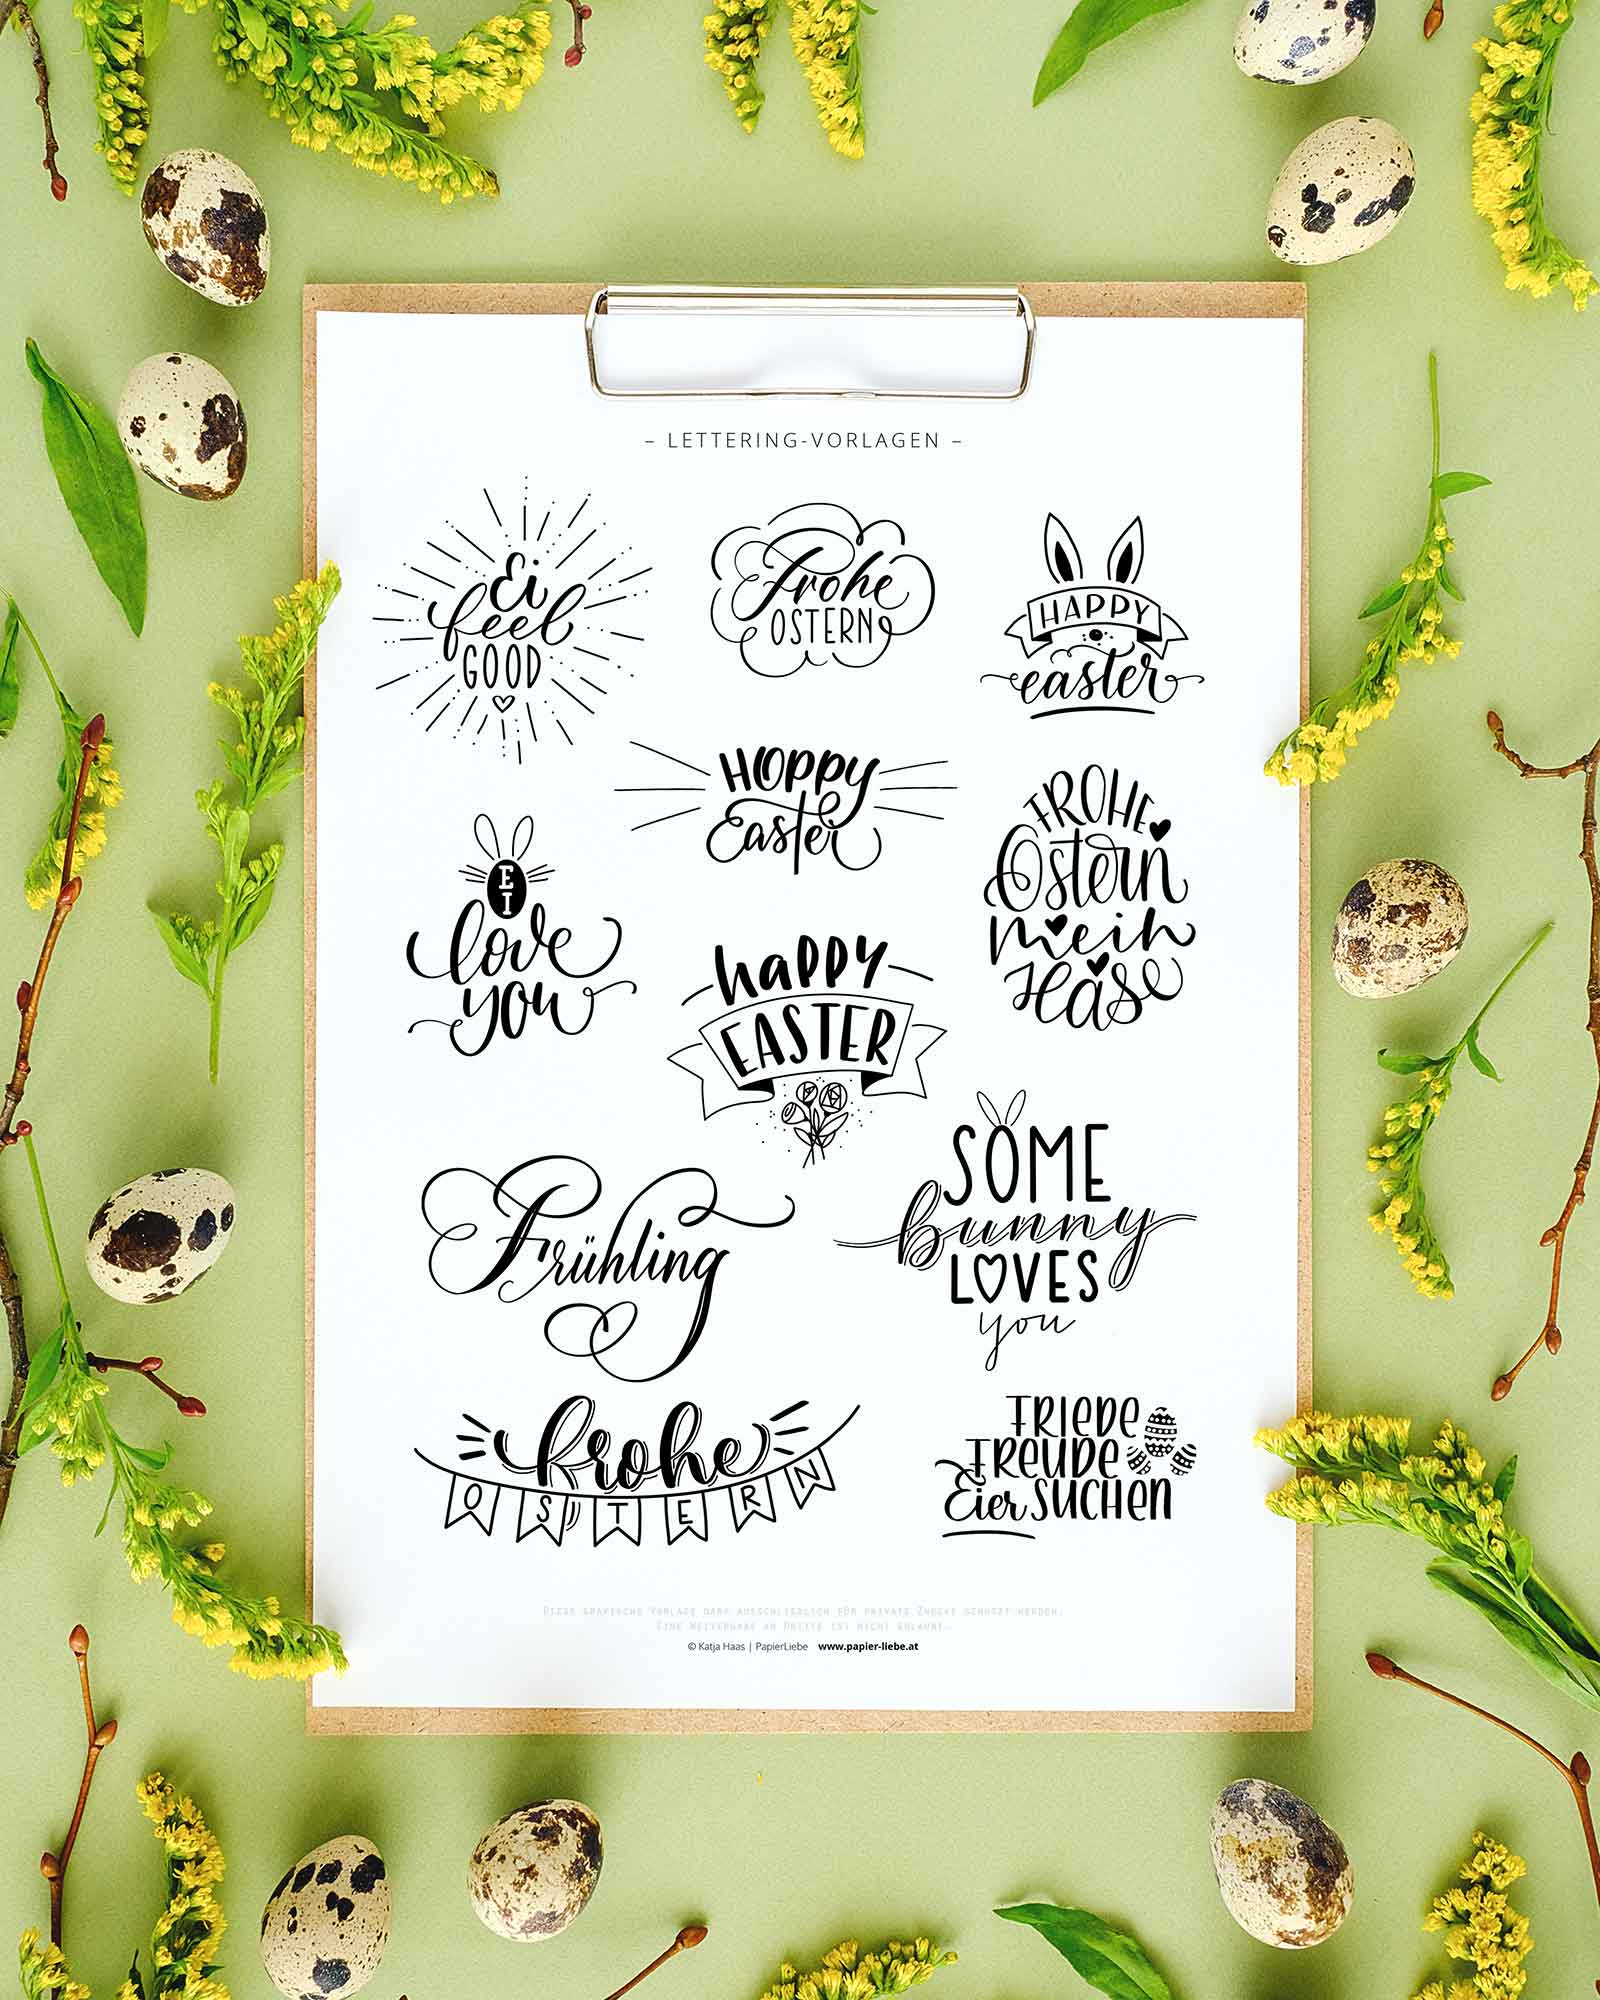 – LETTERING-VORLAGEN –
Ei
feel
GOOD
Frohe
OSTERN
HAPPY
easter
HOPPY
Easter
FROHE
Ostern
mein
Hase
EI
love
you
happy
EASTER
Frühling
SOME
bunny
LOVES
you
frohe
OSTERN
FRIEDE
FREUDE
Eier SUCHEN
Diese grafische Vorlage darf ausschließlich für private Zwecke genutzt werden.
Eine Weitergabe an Dritte ist nicht erlaubt.
© Katja Haas | PapierLiebe www.papier-liebe.at